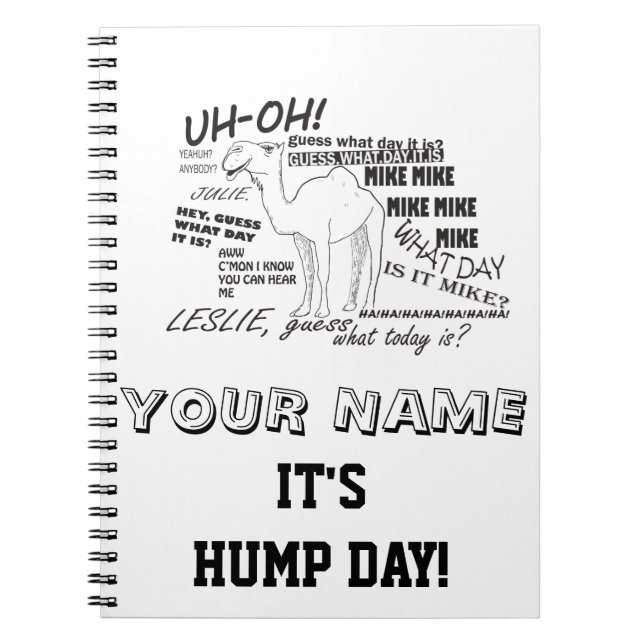 UH-OH!
YEAHUH?
ANYBODY?
JULIE.
HEY, GUESS
WHAT DAY
IT IS?
AWW
C'MON I KNOW
YOU CAN HEAR
ME
guess what day it is?
GUESS.WHAT.DAY.IT.IS
MIKE MIKE
MIKE MIKE
MIKE
WHAT DAY
IS IT MIKE?
HA!HA!HA!HA!HA!HA!HA!HA!
LESLIE, guess
what today is?
YOUR NAME
IT'S
HUMP DAY!